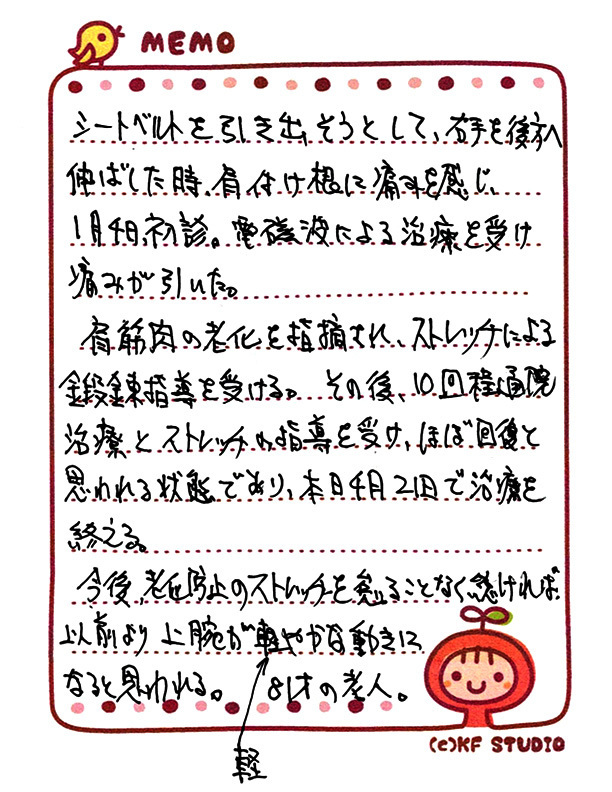 MEMO
シートベルトを引き出そうとして、右手を後方へ
伸ばした時、肩付け根に痛みを感じ、
1月4日初診。電磁波による治療を受け
痛みが引いた。
肩筋肉の老化を指摘され、ストレッチによる
鍛錬指導を受ける。その後、10回程通院
治療とストレッチの指導を受け、ほぼ回復と
思われる状態であり、本日4月21日で治療を
終える。
今後、老化防止のストレッチを怠ることなく続ければ、
以前より上腕が軽やかな動きに
なると思われる。 81才の老人。
軽
(c)KF STUDIO